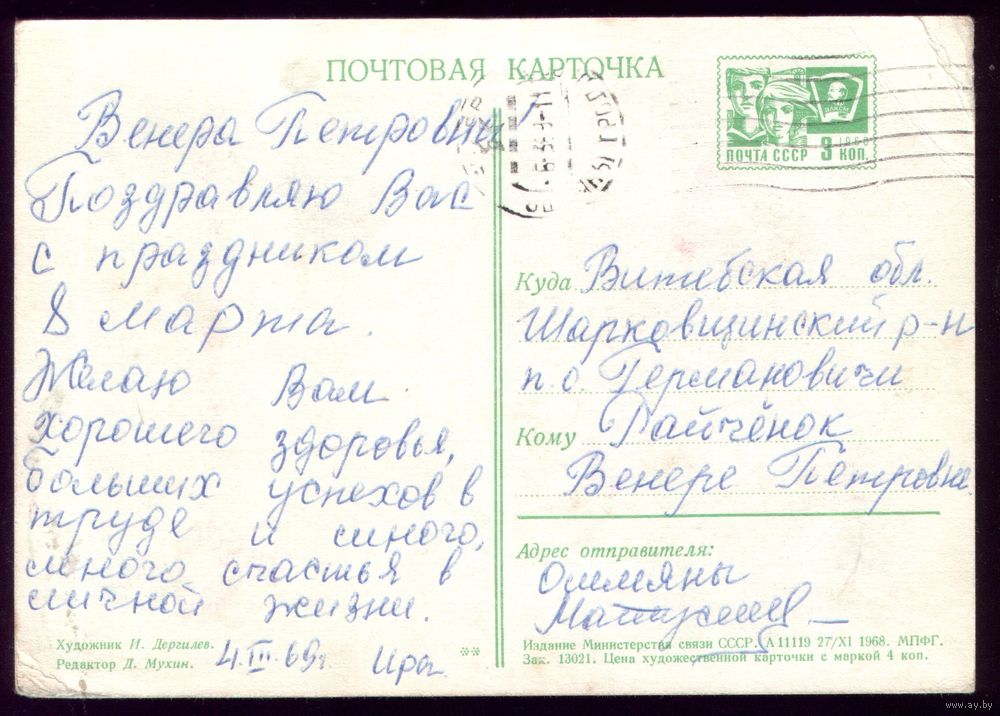 ПОЧТОВАЯ КАРТОЧКА
ПОЧТА СССР 3 КОП.
1966
ВЛКСМ
Венера Петровна!
Поздравляю Вас
с праздником
8 марта.
Желаю Вам
хорошего здоровья,
больших успехов в
труде и много,
много счастья в
личной жизни.
4.III.69г Ира
Художник И. Дергилев.
Редактор Д. Мухин.
**
Куда Витебская обл.
Шарковщинский р-н
п.о. Германовичи
Кому Райчёнок
Венере Петровне
Адрес отправителя:
Ошмяны
Издание Министерства связи СССР. А 11119 27/XI 1968. МПФГ.
Зак. 13021. Цена художественной карточки с маркой 4 коп.
www.ay.by